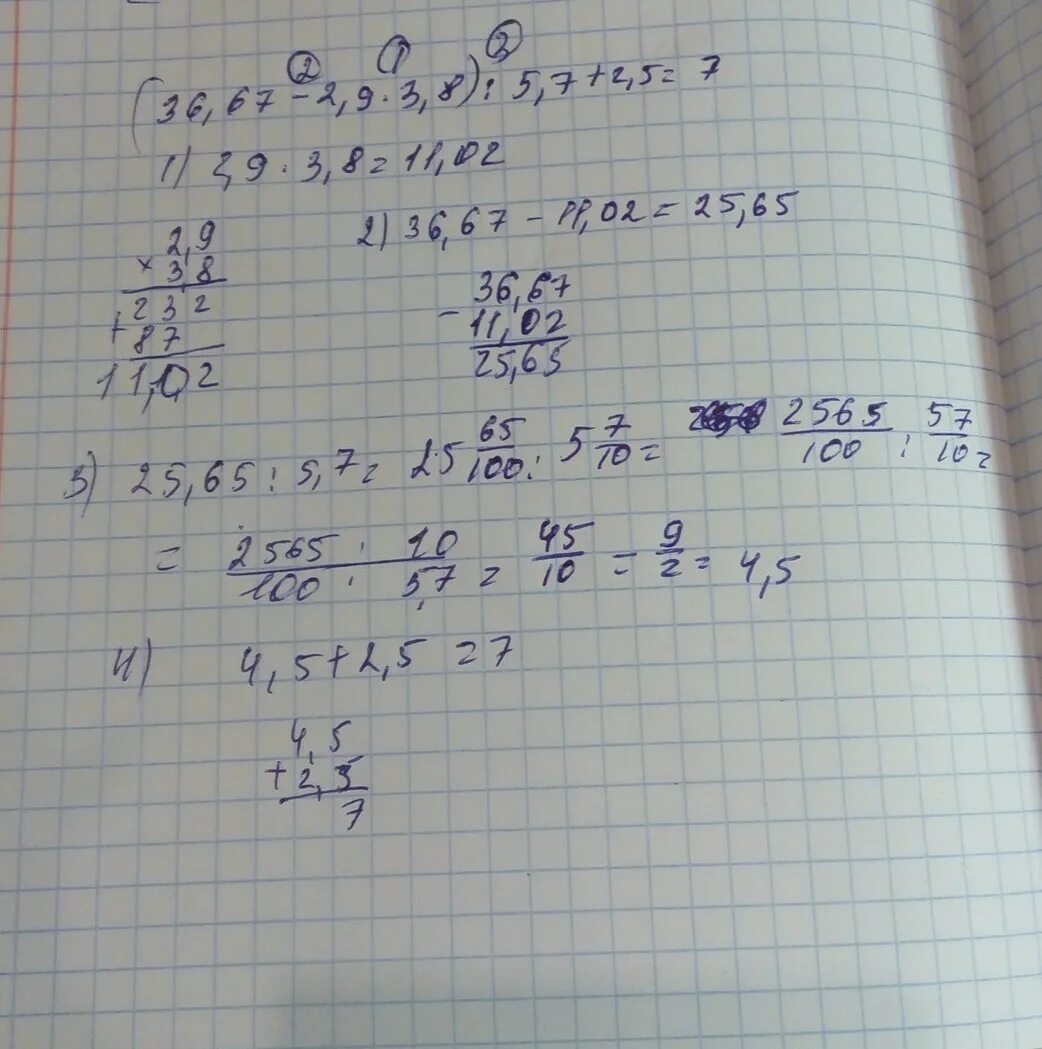 ② ① ③
(36,67 - 2,9 · 3,8) : 5,7 + 2,5 = 7
1) 2,9 · 3,8 = 11,02
2) 36,67 - 11,02 = 25,65
2,9
× 3,8
232
+ 87
11,02
36,67
- 11,02
25,65
3) 25,65 : 5,7 = 25 65/100 : 5 7/10 = 2565/100 : 57/10 =
= 2565/100 · 10/5,7 = 45/10 = 9/2 = 4,5
4) 4,5 + 2,5 = 7
4,5
+ 2,5
7